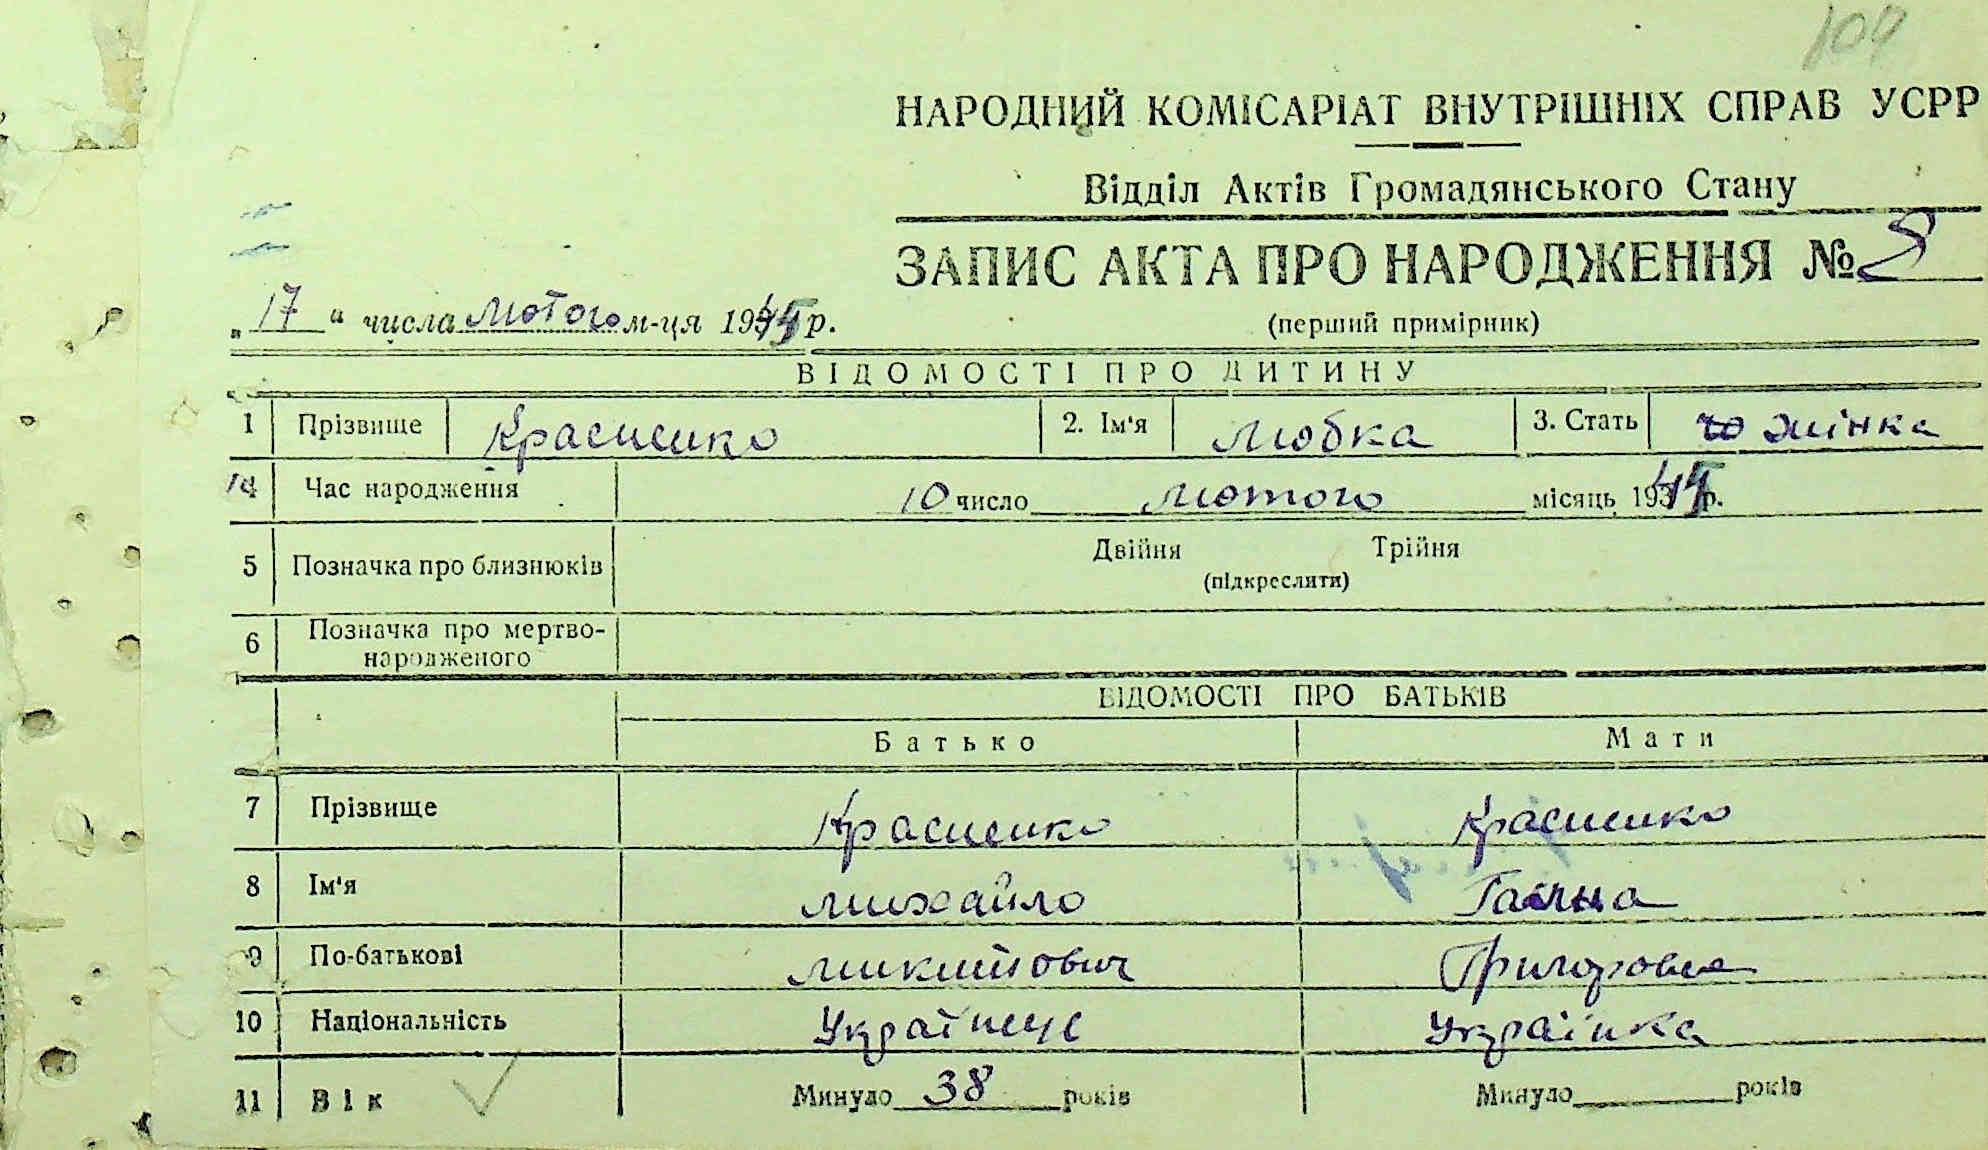 109
НАРОДНИЙ КОМІСАРІАТ ВНУТРІШНІХ СПРАВ УСРР
Відділ Актів Громадянського Стану
ЗАПИС АКТА ПРО НАРОДЖЕННЯ № 8
„17“ числа лютого м-ця 1945 р.
(перший примірник)
ВІДОМОСТІ ПРО ДИТИНУ
1 Прізвище Красненко 2. Ім'я Любка 3. Стать жінка
4 Час народження 10 число лютого місяць 1945 р.
5 Позначка про близнюків Двійня Трійня
(підкреслити)
6 Позначка про мертво-
народженого
ВІДОМОСТІ ПРО БАТЬКІВ
Батько Мати
7 Прізвище Красненко Красненко
8 Ім'я Михайло Галина
9 По-батькові Микитович Григоровна
10 Національність Українец Українка
11 Вік Минуло 38 років Минуло років